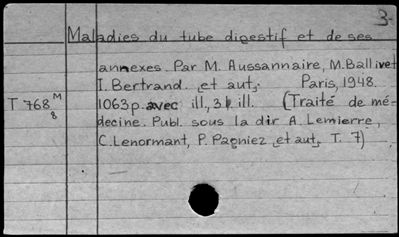 3
Maladies du tube digestif et de ses
annexes. Par M. Aussannaire, M. Ballivet
I. Bertrand. et aut. Paris, 1948.
T 768 M 8 1063 p. avec ill, 31 ill. (Traité de mé-
decine. Publ. sous la dir A. Lemierre,
C. Lenormant, P. Pagniez et aut. T. 7)